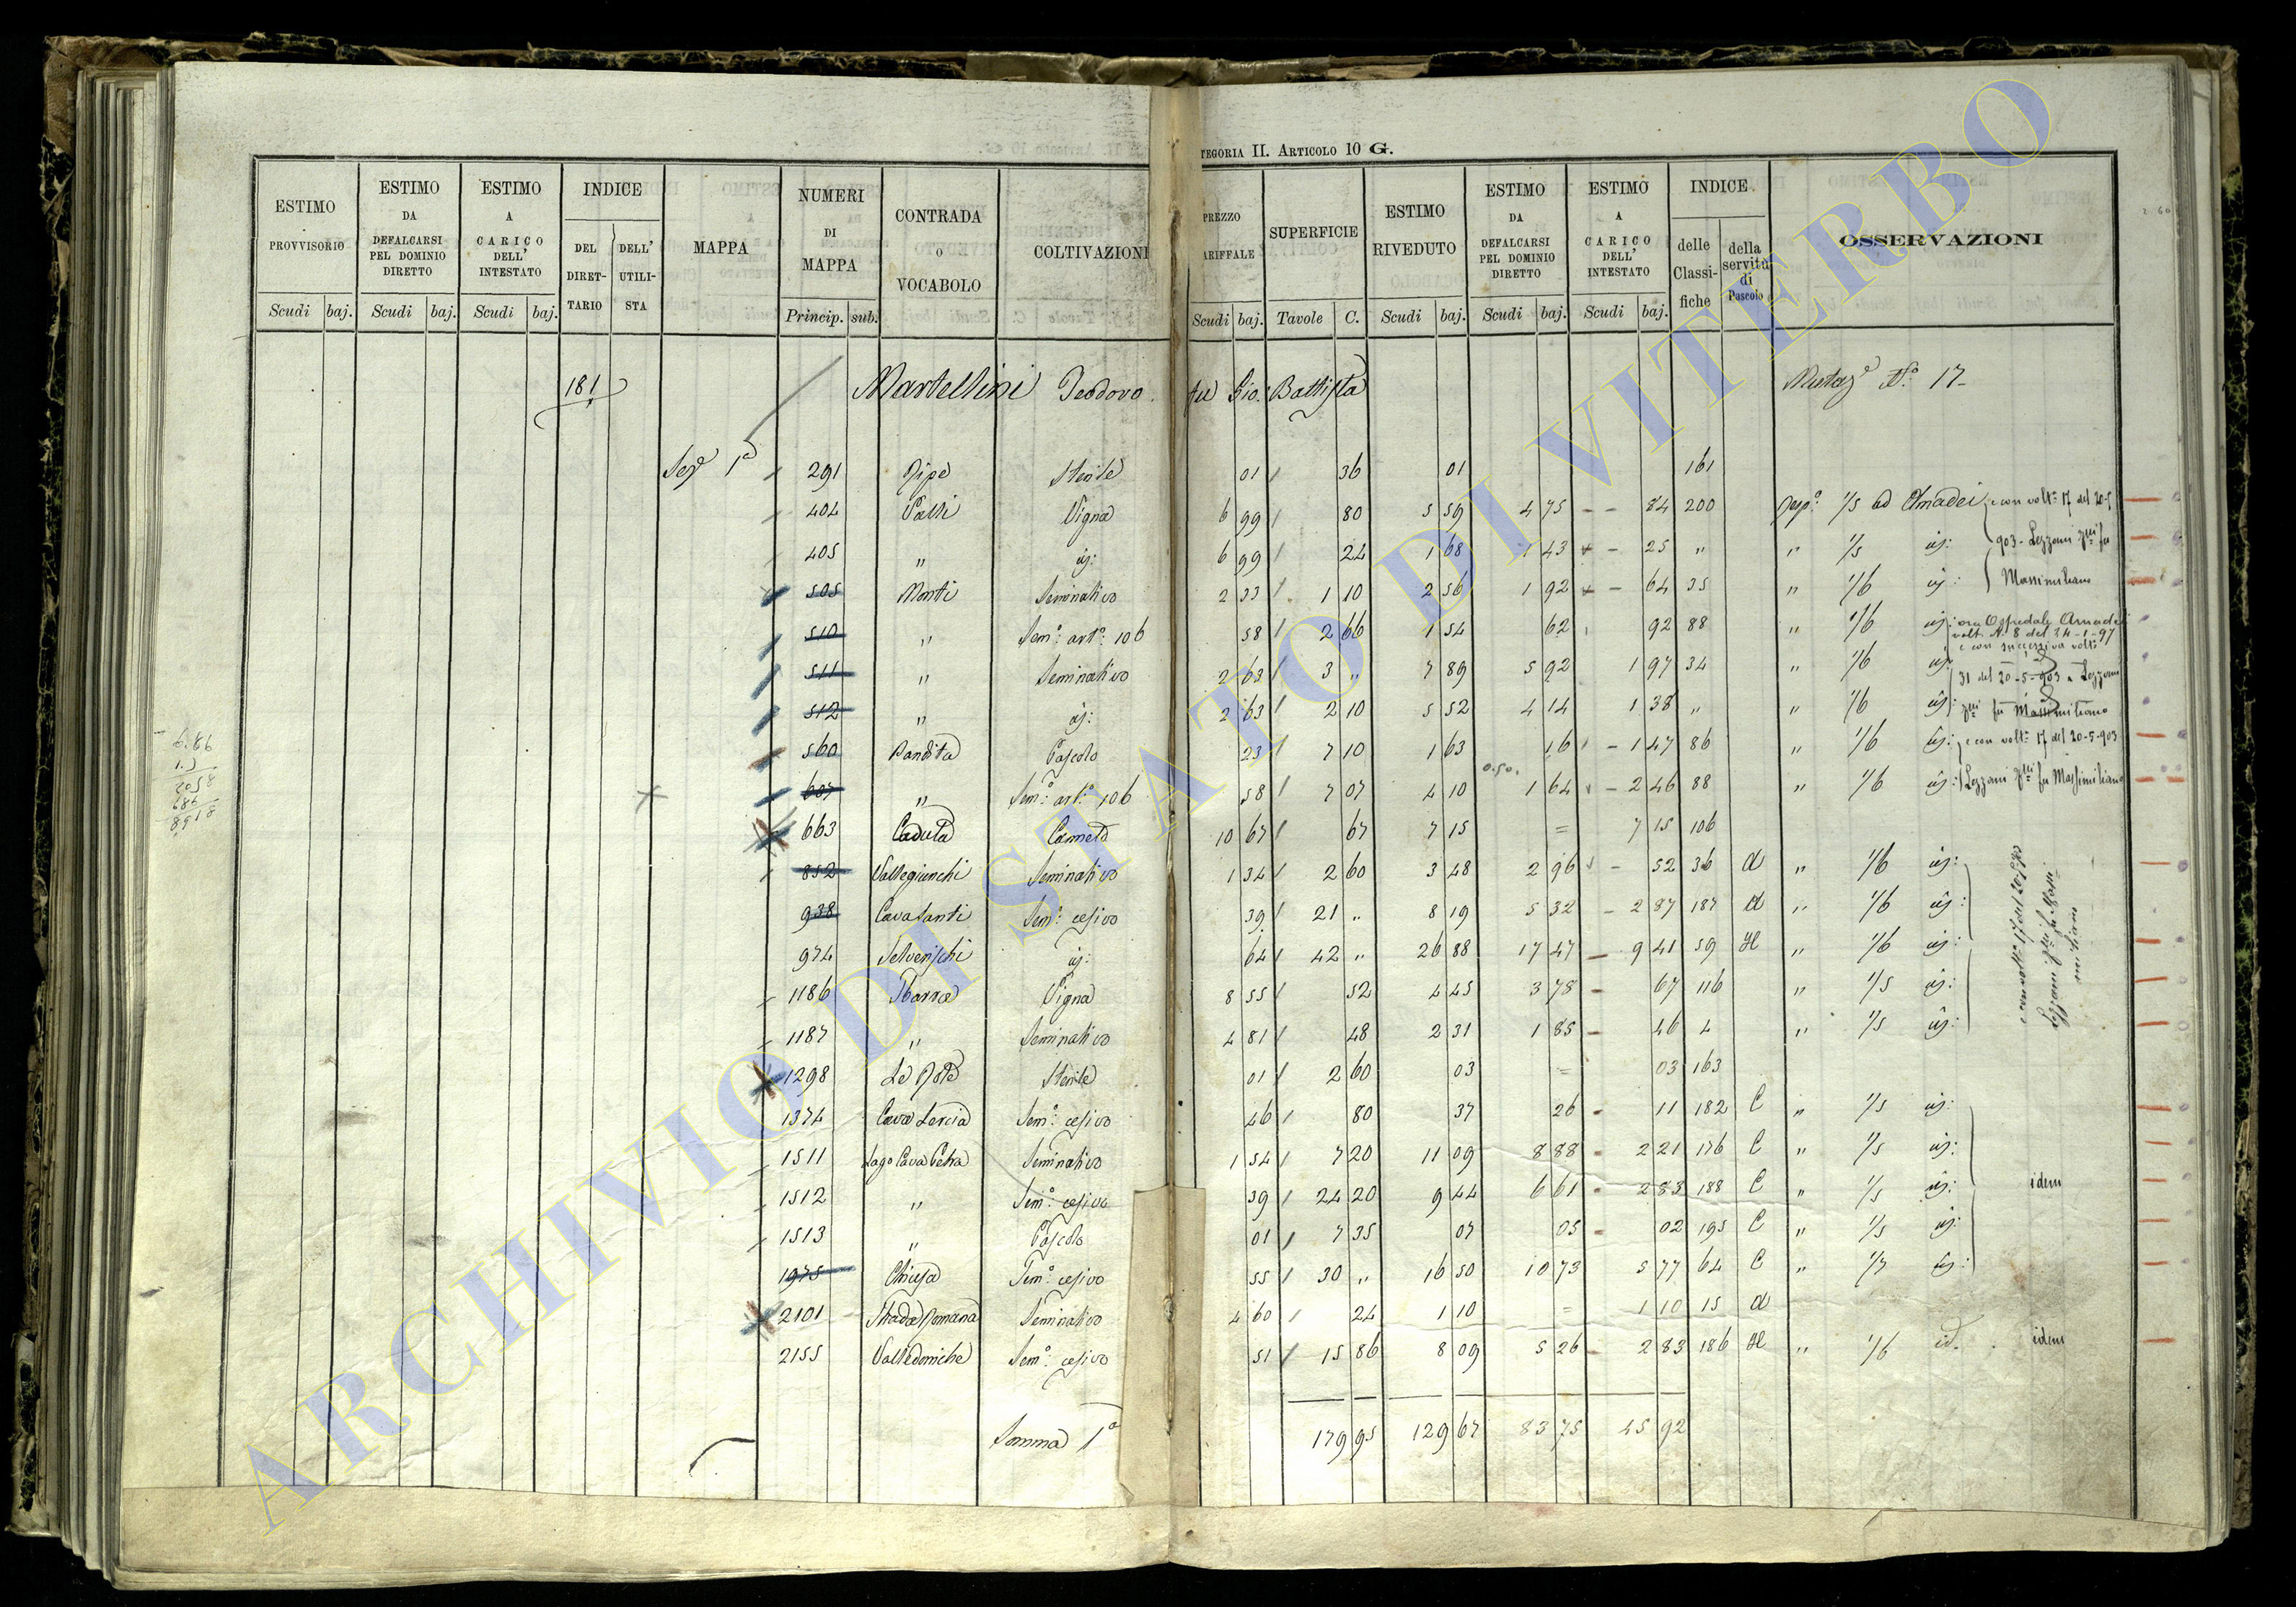 TEGORIA II. ARTICOLO 10 G.
ESTIMO PROVVISORIO Scudi baj.
ESTIMO DA DEFALCARSI PEL DOMINIO DIRETTO Scudi baj.
ESTIMO A CARICO DELL' INTESTATO Scudi baj.
INDICE DEL DIRETTARIO DELL' UTILISTA
MAPPA
NUMERI DI MAPPA Princip. sub.
CONTRADA O VOCABOLO
COLTIVAZIONI
PREZZO ARIFFALE Scudi baj.
SUPERFICIE Tavole C.
ESTIMO RIVEDUTO Scudi baj.
ESTIMO DA DEFALCARSI PEL DOMINIO DIRETTO Scudi baj.
ESTIMO A CARICO DELL' INTESTATO Scudi baj.
INDICE delle Classifiche della servitù di Pascolo
OSSERVAZIONI
181 Martellini Teodoro fu Gio: Battista Mutaz.e N.o 17
Sez.e 1a 291 Ripe Sterile 01 36 01 161
404 Valli Vigna 6 99 80 5 59 4 75 84 200 Risp.a 1/5 ad Amadei e con volt.a 17 del 20-5
405 " id: 6 99 24 1 68 1 43 25 " " 1/5 id: 903 - Lezzani fu
505 Monti Seminativo 2 33 1 10 2 56 1 92 64 35 " 1/6 id: Massimiliano
510 " Sem.o art.o 106 58 2 66 1 54 62 92 88 " 1/6 id: ora Ospedale Amadei
volt. N. 8 del 24-1-97
e con successiva volt.a
511 " Seminativo 2 63 3 " 7 89 5 92 1 97 34 " 1/6 id: 31 del 20-5-903 a Lezzani
512 " id: 2 63 2 10 5 52 4 14 1 38 " " 1/6 id: fu Massimiliano
560 Bandita Pascolo 23 7 10 1 63 16 1 47 86 " 1/6 id: e con volt.a 17 del 20-5-903
0.50.
607 " Sem.o art.o 106 58 7 07 4 10 1 64 2 46 88 " 1/6 id: Lezzani fu Massimiliano
663 Caduta Canneto 10 67 67 7 15 = 7 15 106
852 Vallegiunchi Seminativo 1 34 2 60 3 48 2 96 52 36 a " 1/6 id:
938 Cavasanti Sem.o cesivo 39 21 " 8 19 5 32 2 87 187 a " 1/6 id:
974 Selverischi id: 64 42 " 26 88 17 47 9 41 59 " 1/6 id:
1186 Sbarra Vigna 8 55 52 4 45 3 78 67 116 " 1/5 id:
1187 " Seminativo 4 81 48 2 31 1 85 46 4 " 1/5 id:
e con volt.a 17 del 20-5-903
Lezzani fu Massimiliano
1298 Le Rote Sterile 01 2 60 03 = 03 163
1374 Cava Lercia Sem.o cesivo 46 80 37 26 11 182 C " 1/5 id:
1511 Lago Cava Petra Seminativo 1 54 7 20 11 09 8 88 2 21 176 C " 1/5 id:
1512 " Sem.o cesivo 39 24 20 9 44 6 61 2 83 188 C " 1/5 id: idem
1513 " Pascolo 01 7 35 07 05 02 195 C " 1/5 id:
1975 Chiusa Sem.o cesivo 55 30 " 16 50 10 73 5 77 64 C " 1/7 id:
2101 Strada Romana Seminativo 4 60 24 1 10 = 1 10 15 a
2155 Valledoniche Sem.o cesivo 51 15 86 8 09 5 26 2 83 186 " 1/6 id. idem
Somma 1a 179 95 129 67 83 75 45 92
ARCHIVIO DI STATO DI VITERBO